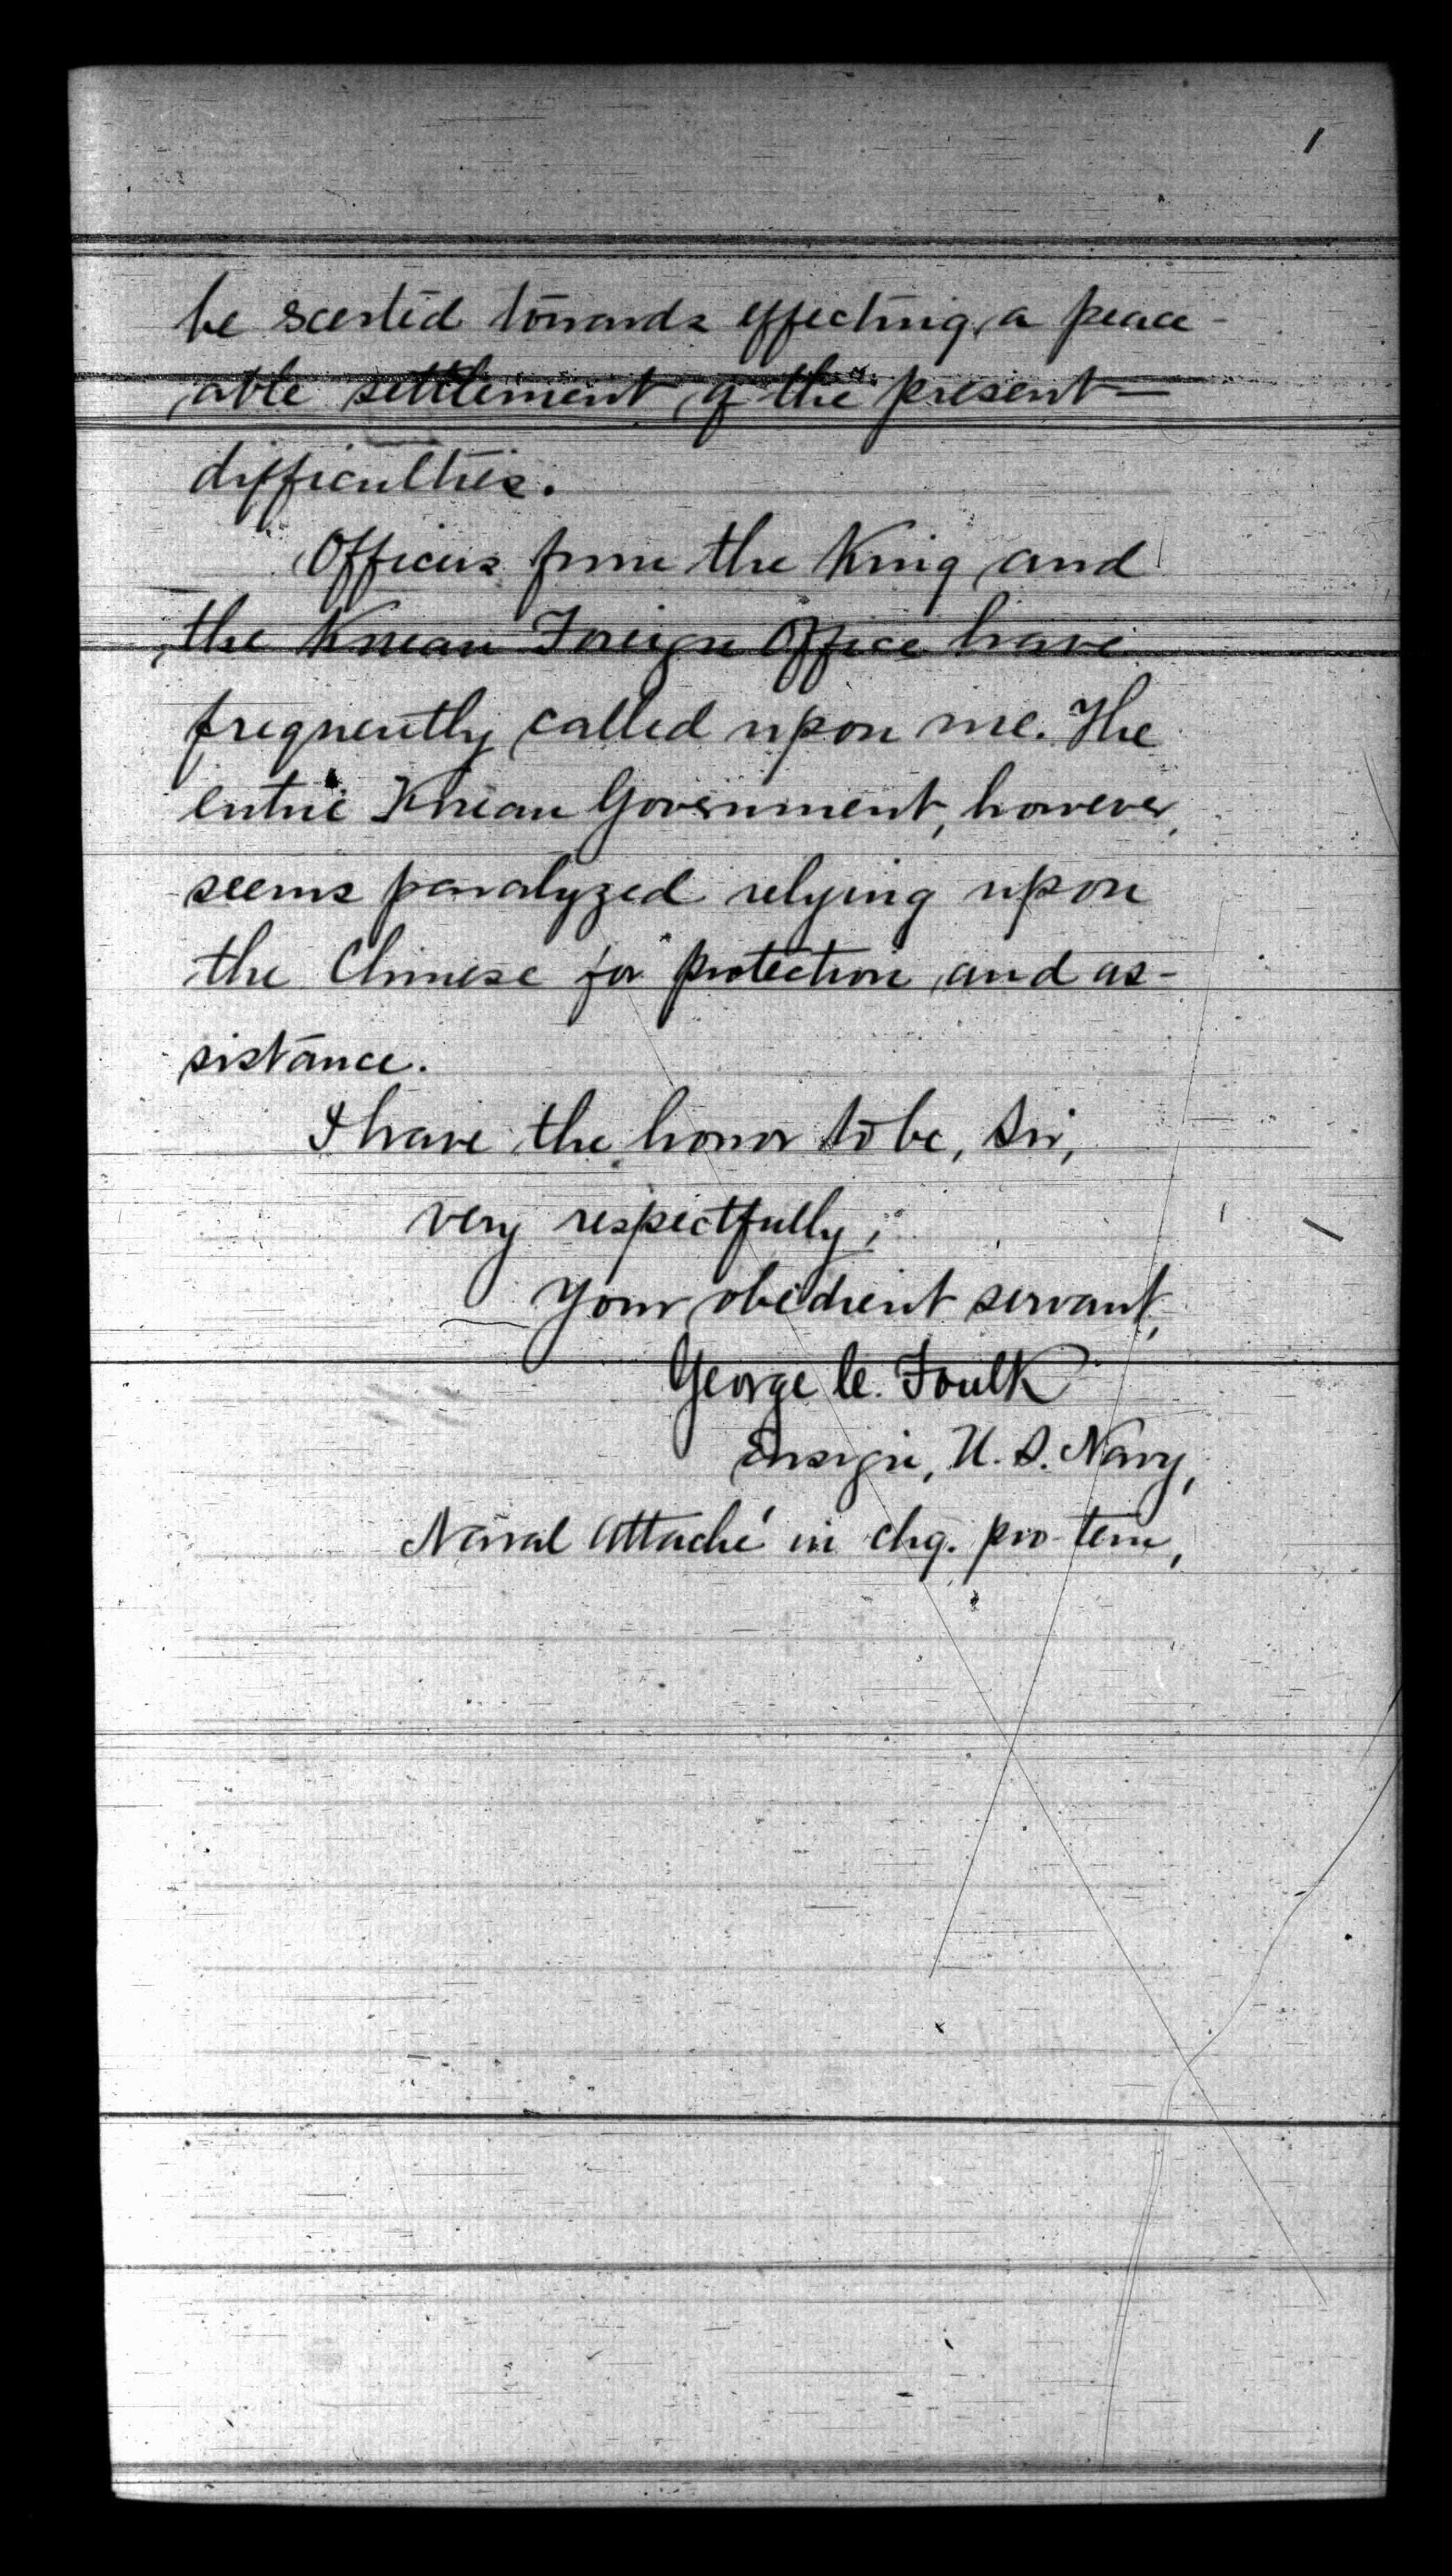 be exerted towards effecting a peace-
able settlement of the present
difficulties.
Officers from the King and
the Korean Foreign Office have
frequently called upon me. The
entire Korean Government, however,
seems paralyzed relying upon
the Chinese for protection and as-
sistance.
I have the honor to be, Sir,
very respectfully,
Your obedient servant,
George C. Foulk
Ensign, U. S. Navy,
Naval Attaché in chg. pro tem,